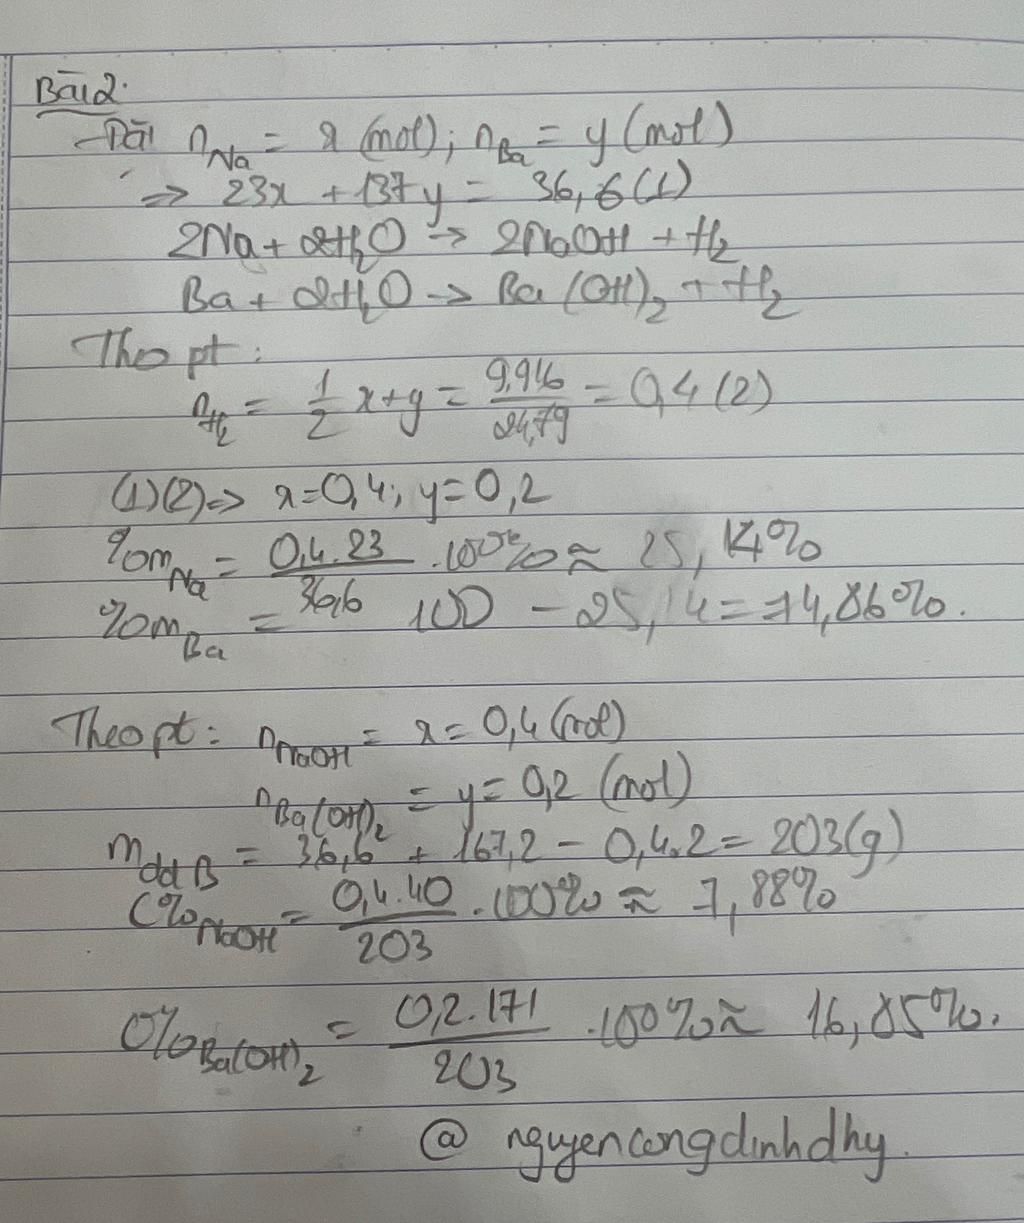 Bài 2:
- Đặt n_Na = x (mol); n_Ba = y (mol)
=> 23x + 137y = 36,6 (1)
2Na + 2H₂O -> 2NaOH + H₂
Ba + 2H₂O -> Ba(OH)₂ + H₂
Theo pt:
n_H₂ = 1/2 x + y = 9,916/24,79 = 0,4 (2)
(1)(2) => x = 0,4; y = 0,2
%m_Na = 0,4.23/36,6 .100% ≈ 25,14%
%m_Ba = 100 - 25,14 = 74,86%.
Theo pt: n_NaOH = x = 0,4 (mol)
n_Ba(OH)₂ = y = 0,2 (mol)
m_dd B = 36,6 + 167,2 - 0,4.2 = 203 (g)
C%_NaOH = 0,4.40/203 .100% ≈ 7,88%
C%_Ba(OH)₂ = 0,2.171/203 .100% ≈ 16,85%.
@ nguyencongdinhdhy.